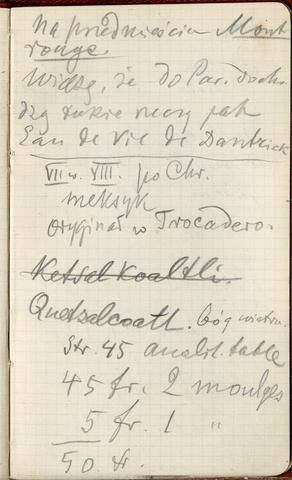 Na przedmieściu Mont
rouge.
Widzę, że do Par. docho
dzą takie rzeczy jak
Eau de vie de Dantzick
VII w. VIII. po Chr.
meksyk
oryginał w Trocadero.
Ketsalkoaltli.
Quetzalcoatl. bóg wiatru.
Str. 45 analit. table
45 fr. 2 moulges
5 fr. 1 "
50. fr.